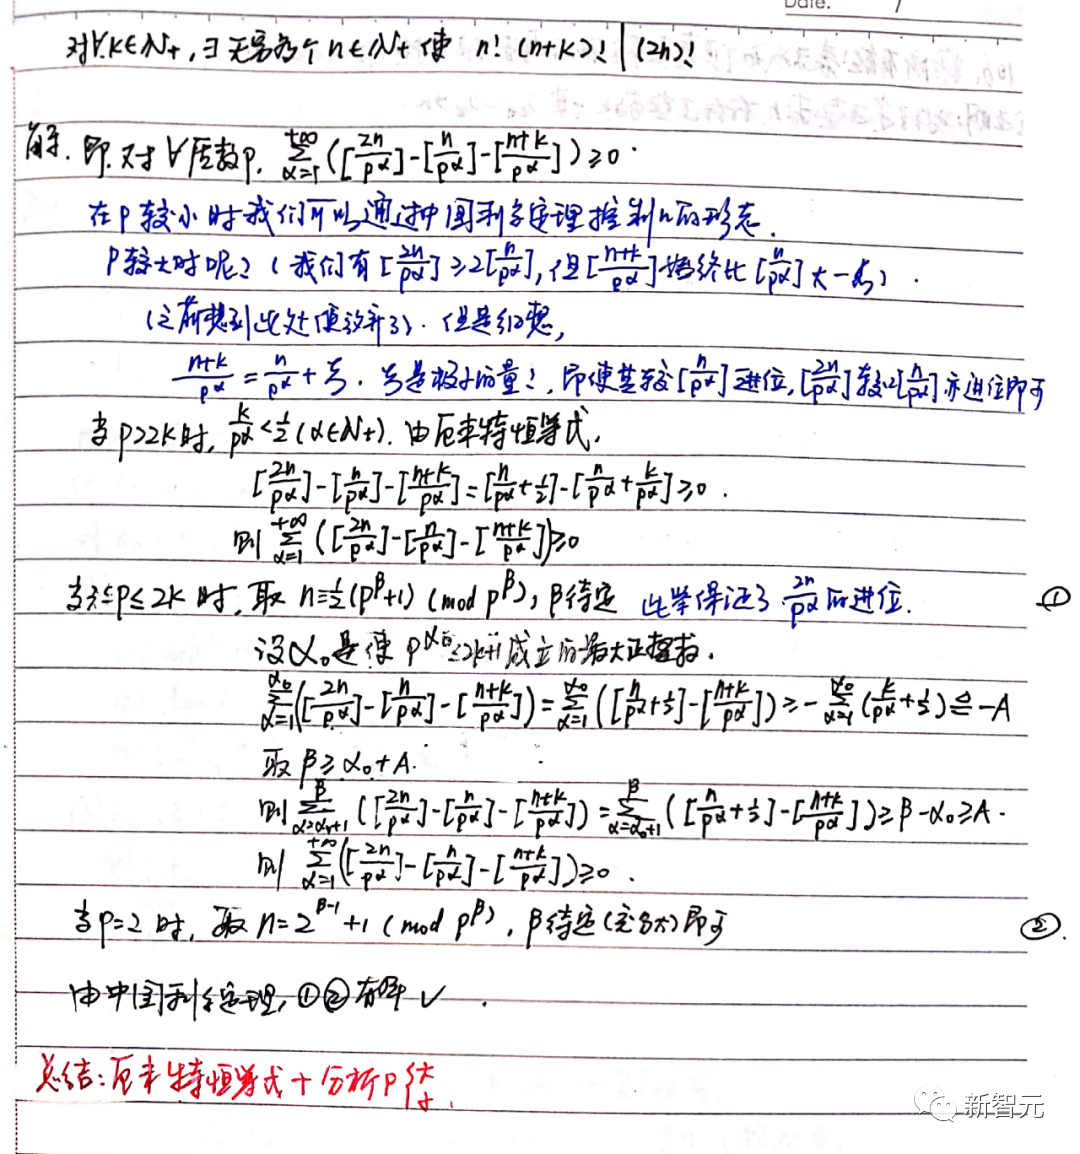 Date.
对∀k∈N₊,∃无穷多个n∈N₊使 n!(n+k)! | (2n)!
解. 即对∀质数p, ∑_{α=1}^{+∞}([2n/p^α]-[n/p^α]-[(n+k)/p^α])≥0.
在p较小时我们可以通过中国剩余定理控制n的形态.
p较大时呢?(我们有[2n/p^α]≥2[n/p^α],但[(n+k)/p^α]始终比[n/p^α]大一点).
(之前想到此处便放弃了).但是细想,
(n+k)/p^α=n/p^α+ . 是极小的量!,即使其较[n/p^α]进位,[2n/p^α]较2[n/p^α]亦进位即可
当p>2k时, k/p^α<1/2(α∈N₊).由厄米特恒等式,
[2n/p^α]-[n/p^α]-[(n+k)/p^α]=[n/p^α+1/2]-[n/p^α+k/p^α]≥0.
则∑_{α=1}^{+∞}([2n/p^α]-[n/p^α]-[(n+k)/p^α])≥0
当3≤p≤2k时,取n≡1/2(p^β+1)(mod p^β),β待定 此举保证了2n/p^α的进位. ①
设α₀是使p^{α₀}≤2k+1成立的最大正整数.
∑_{α=1}^{α₀}([2n/p^α]-[n/p^α]-[(n+k)/p^α])=∑_{α=1}^{α₀}([n/p^α+1/2]-[(n+k)/p^α])≥-∑_{α=1}^{α₀}(k/p^α+1/2)≜-A
取β≥α₀+A.
则∑_{α=α₀+1}^{β}([2n/p^α]-[n/p^α]-[(n+k)/p^α])=∑_{α=α₀+1}^{β}([n/p^α+1/2]-[(n+k)/p^α])≥β-α₀≥A.
则∑_{α=1}^{+∞}([2n/p^α]-[n/p^α]-[(n+k)/p^α])≥0.
当p=2时,取n=2^{β-1}+1(mod p^β),β待定(充分大)即可 ②.
由中国剩余定理,①②有解√.
总结:厄米特恒等式+分析p 大小.
新智元